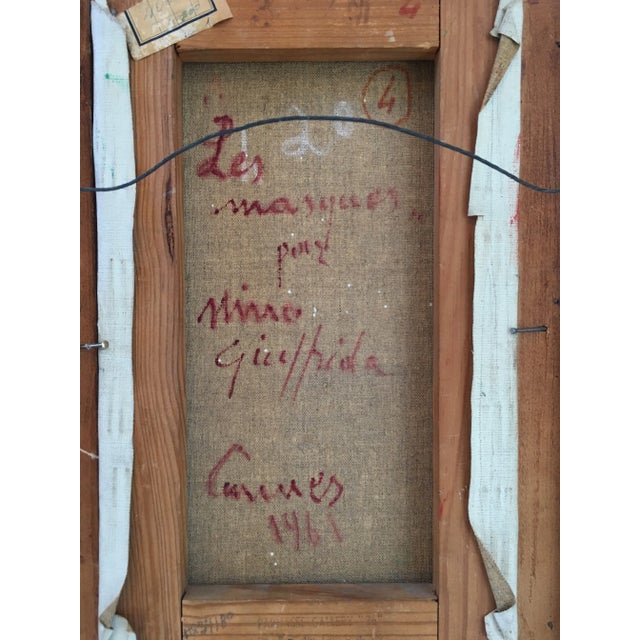 4
4
120
"Les
masques"
par
Nino
Giuffrida
Cannes
1961